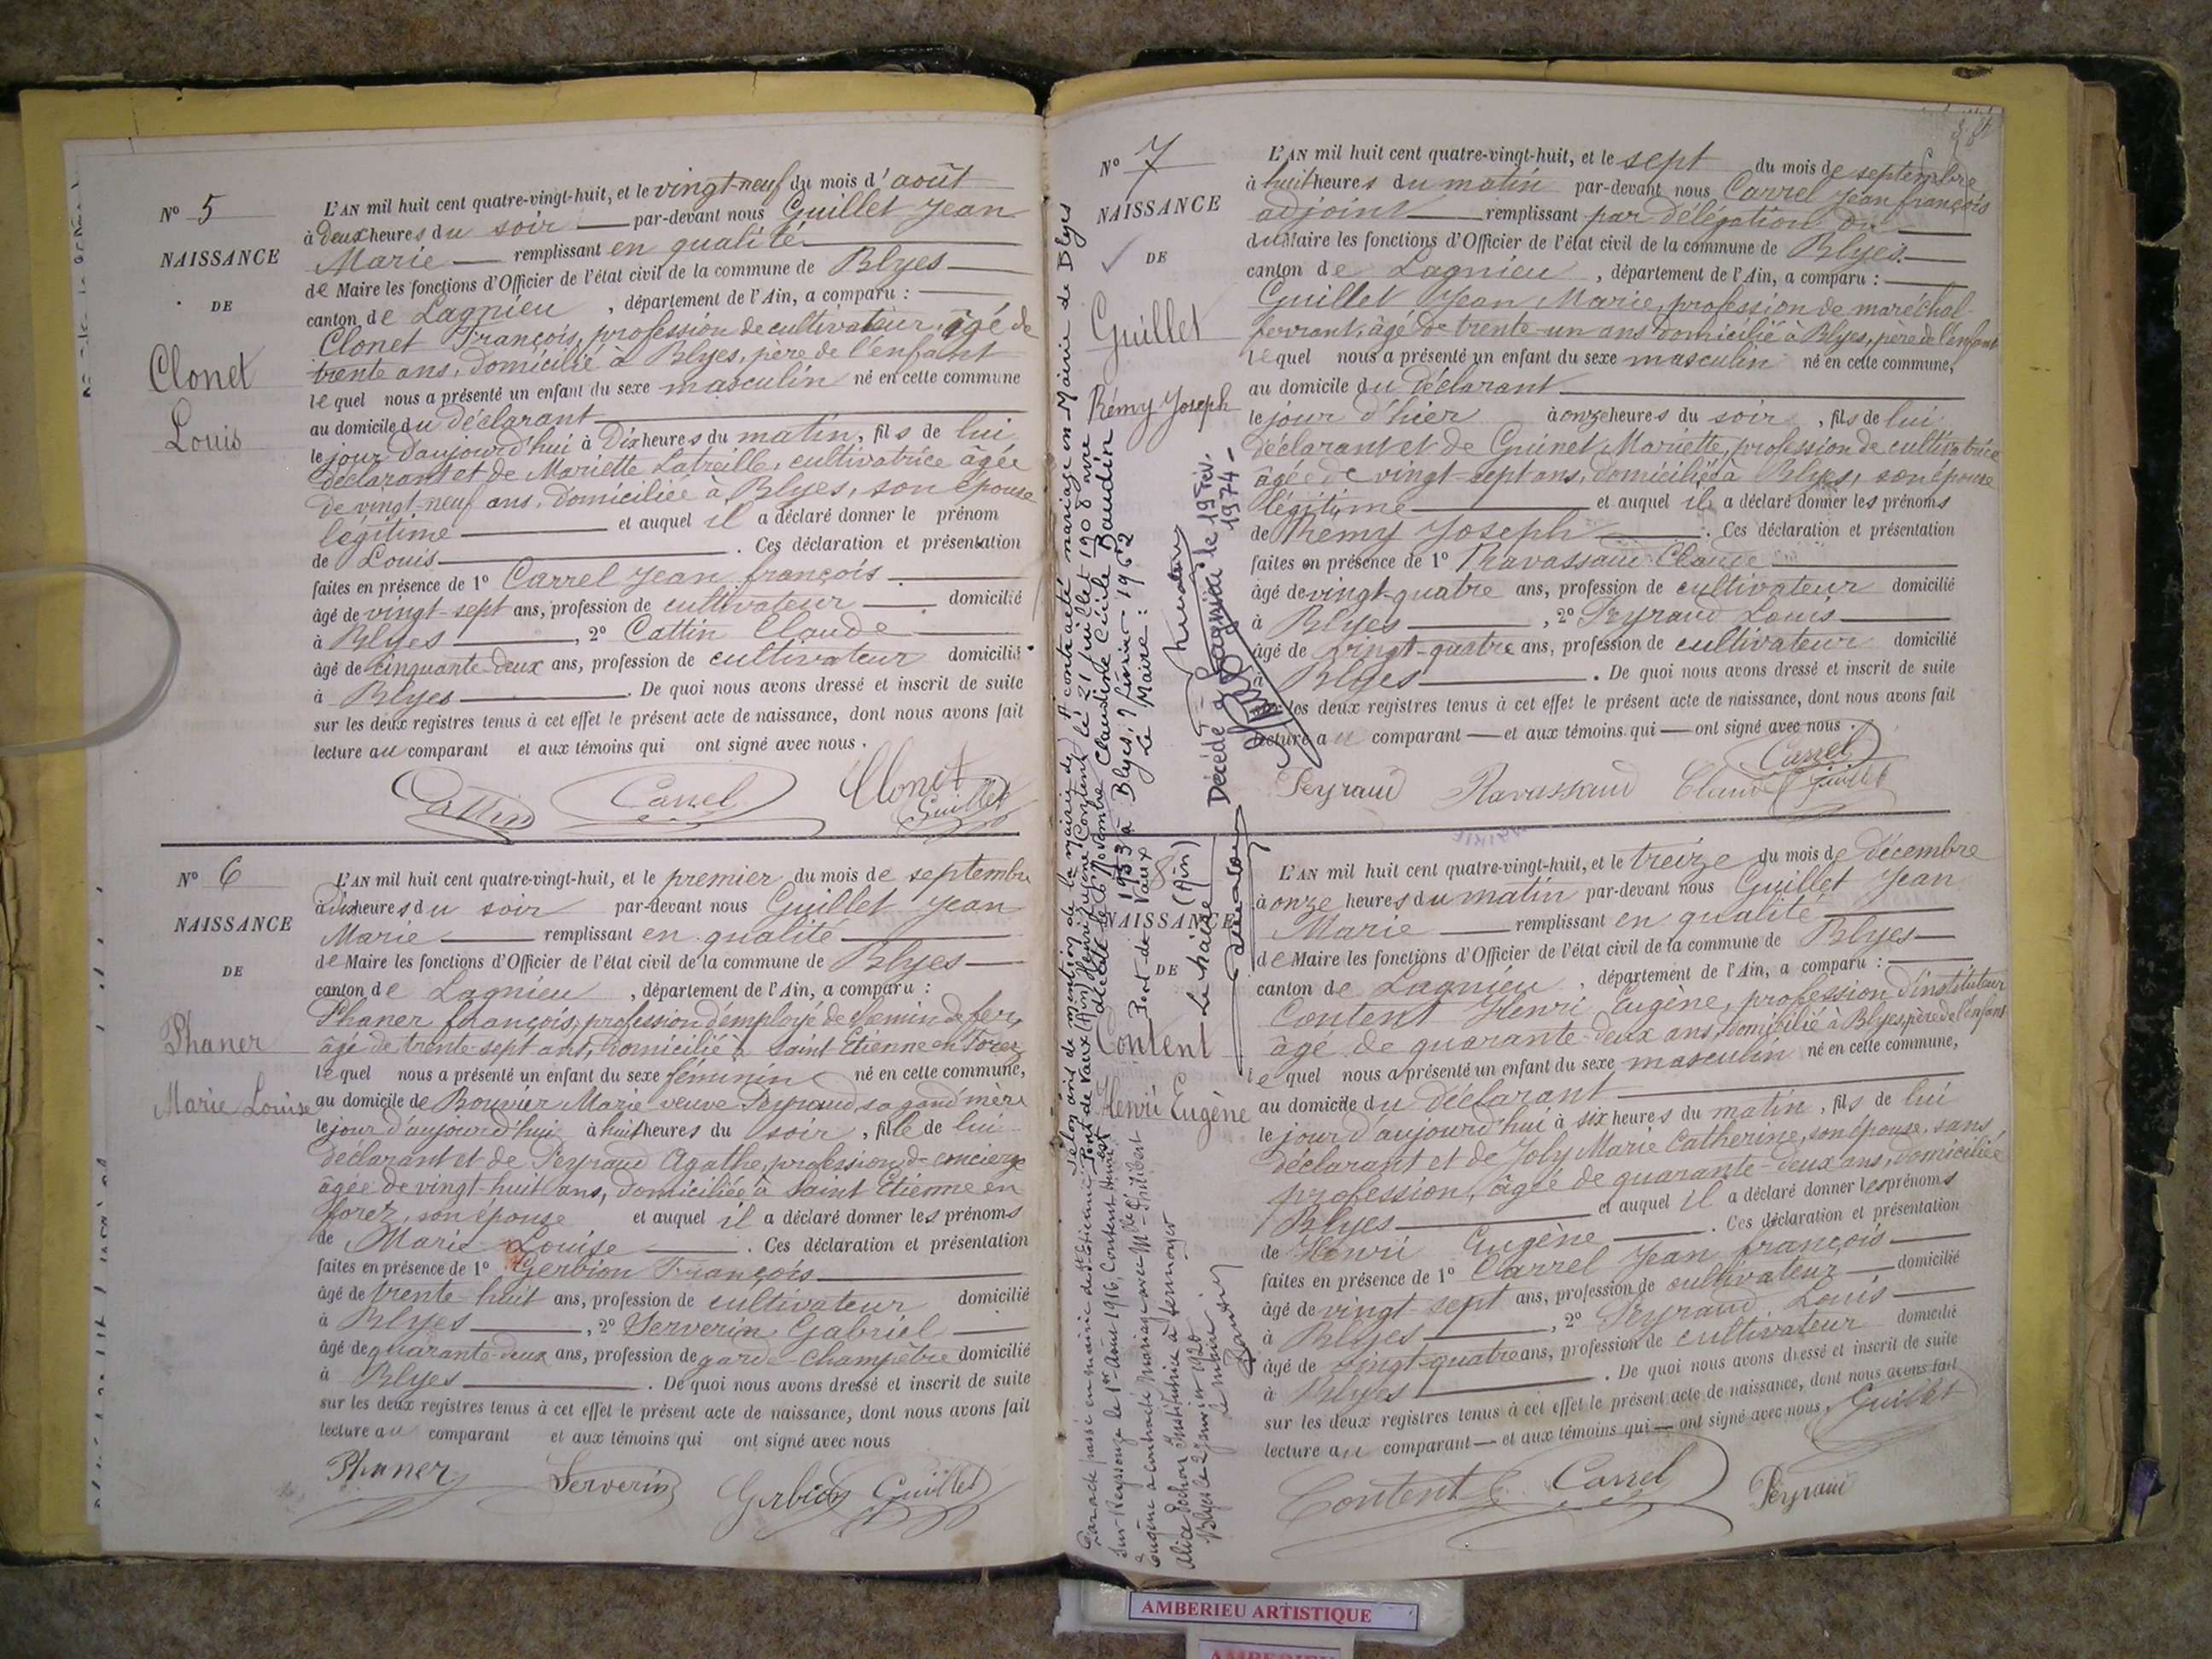 N° 5
NAISSANCE
DE
Clonet
Louis
L'AN mil huit cent quatre-vingt-huit, et le vingt-neuf du mois d'août
à deux heures du soir par-devant nous Guillet Jean
Marie remplissant en qualité
de Maire les fonctions d'Officier de l'état civil de la commune de Blyes
canton de Lagnieu, département de l'Ain, a comparu :
Clonet François, profession de cultivateur, âgé de
trente ans, domicilié à Blyes, père de l'enfant
lequel nous a présenté un enfant du sexe masculin né en cette commune
au domicile du déclarant
le jour d'aujourd'hui à Dix heures du matin, fils de lui
déclarant et de Mariette Latreille, cultivatrice âgée
de vingt-neuf ans, domiciliée à Blyes, son épouse
légitime et auquel il a déclaré donner le prénom
de Louis. Ces déclaration et présentation
faites en présence de 1° Carrel Jean françois
âgé de vingt-sept ans, profession de cultivateur domicilié
à Blyes, 2° Cattin Claude
âgé de cinquante-deux ans, profession de cultivateur domicilié
à Blyes. De quoi nous avons dressé et inscrit de suite
sur les deux registres tenus à cet effet le présent acte de naissance, dont nous avons fait
lecture au comparant et aux témoins qui ont signé avec nous.
Cattin Carrel Clonet
Guillet
N° 6
NAISSANCE
DE
Phaner
Marie Louise
L'AN mil huit cent quatre-vingt-huit, et le premier du mois de septembre
à dix heures du soir par-devant nous Guillet Jean
Marie remplissant en qualité
de Maire les fonctions d'Officier de l'état civil de la commune de Blyes
canton de Lagnieu, département de l'Ain, a comparu :
Phaner françois, profession d'employé de chemin de fer,
âgé de trente-sept ans, domicilié à Saint Etienne en Forez
lequel nous a présenté un enfant du sexe féminin né en cette commune,
au domicile de Bouvier Marie veuve Peyraud, sa grand'mère
le jour d'aujourd'hui à huit heures du soir, fille de lui
déclarant et de Peyraud Agathe, profession de concierge
âgée de vingt-huit ans, domiciliée à Saint Etienne en
forez, son épouse et auquel il a déclaré donner les prénoms
de Marie Louise. Ces déclaration et présentation
faites en présence de 1° Gerbion François
âgé de trente-huit ans, profession de cultivateur domicilié
à Blyes, 2° Serverin Gabriel
âgé de quarante-deux ans, profession de garde-champêtre domicilié
à Blyes. De quoi nous avons dressé et inscrit de suite
sur les deux registres tenus à cet effet le présent acte de naissance, dont nous avons fait
lecture au comparant et aux témoins qui ont signé avec nous
Phaner Serverin Gerbion Guillet
N° 7
NAISSANCE
DE
Guillet
Rémy Joseph
L'AN mil huit cent quatre-vingt-huit, et le sept du mois de septembre
à huit heures du matin par-devant nous Carrel Jean françois
adjoint remplissant par délégation
du Maire les fonctions d'Officier de l'état civil de la commune de Blyes
canton de Lagnieu, département de l'Ain, a comparu :
Guillet Jean Marie, profession de maréchal
ferrant, âgé de trente-un ans domicilié à Blyes, père de l'enfant
lequel nous a présenté un enfant du sexe masculin né en cette commune,
au domicile du déclarant
le jour d'hier à onze heures du soir, fils de lui
déclarant et de Guinet Mariette, profession de cultivatrice
âgée de vingt-sept ans, domiciliée à Blyes, son épouse
légitime et auquel il a déclaré donner les prénoms
de Rémy Joseph. Ces déclaration et présentation
faites en présence de 1° Ravassaud Claude
âgé de vingt-quatre ans, profession de cultivateur domicilié
à Blyes, 2° Peyraud Louis
âgé de vingt-quatre ans, profession de cultivateur domicilié
à Blyes. De quoi nous avons dressé et inscrit de suite
sur les deux registres tenus à cet effet le présent acte de naissance, dont nous avons fait
lecture au comparant et aux témoins qui ont signé avec nous.
Carrel
Peyraud Ravassaud Claude Guillet
A contracté mariage en Mairie de Blyes
le 21 juillet 1908 avec
Claudine Cécile Baudin
Blyes, 7 février 1962
Le Maire :
Décédé à Lagnieu le 19 Fév.
1974 -
8
NAISSANCE
DE
Content
Henri Eugène
L'AN mil huit cent quatre-vingt-huit, et le treize du mois de décembre
à onze heures du matin par-devant nous Guillet Jean
Marie remplissant en qualité
de Maire les fonctions d'Officier de l'état civil de la commune de Blyes
canton de Lagnieu, département de l'Ain, a comparu :
Content Henri Eugène, profession d'instituteur
âgé de quarante-deux ans, domicilié à Blyes, père de l'enfant
lequel nous a présenté un enfant du sexe masculin né en cette commune,
au domicile du déclarant
le jour d'aujourd'hui à six heures du matin, fils de lui
déclarant et de Joly Marie Catherine, son épouse, sans
profession, âgée de quarante-deux ans, domiciliée
Blyes et auquel il a déclaré donner les prénoms
de Henri Eugène. Ces déclaration et présentation
faites en présence de 1° Carrel Jean françois
âgé de vingt-sept ans, profession de cultivateur domicilié
à Blyes, 2° Peyraud Louis
âgé de vingt-quatre ans, profession de cultivateur domicilié
à Blyes. De quoi nous avons dressé et inscrit de suite
sur les deux registres tenus à cet effet le présent acte de naissance, dont nous avons fait
lecture au comparant et aux témoins qui ont signé avec nous. Guillet
Content Carrel Peyraud
Par acte passé en mairie de St Etienne
sur Reyssouze le 1er août 1916, Content Henri
Eugène a contracté mariage avec Mlle Philibert
Alice Institutrice à
Blyes le 2 Janvier 1920
Le maire
Selon avis de mention de la mairie de
Pont de Vaux (Ain) Henri Eugène Content
est décédé le Novembre
1953 à
Pont-de-Vaux (Ain)
Le Maire
AMBERIEU ARTISTIQUE
AMBERIEU